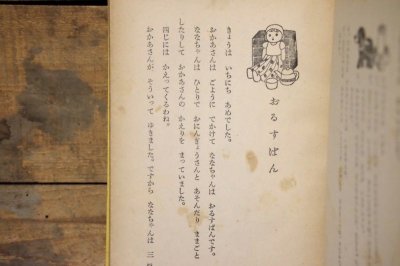 おるすばん
きょうは いちにち あめでした。
おかあさんは ごように でかけて ななちゃんは おるすばんです。
ななちゃんは ひとりで おにんぎょうさんと あそんだり ままごと
したりして おかあさんの かえりを まっていました。
四じには かえってくるわね。
おかあさんが そういって ゆきました。ですから ななちゃんは 三